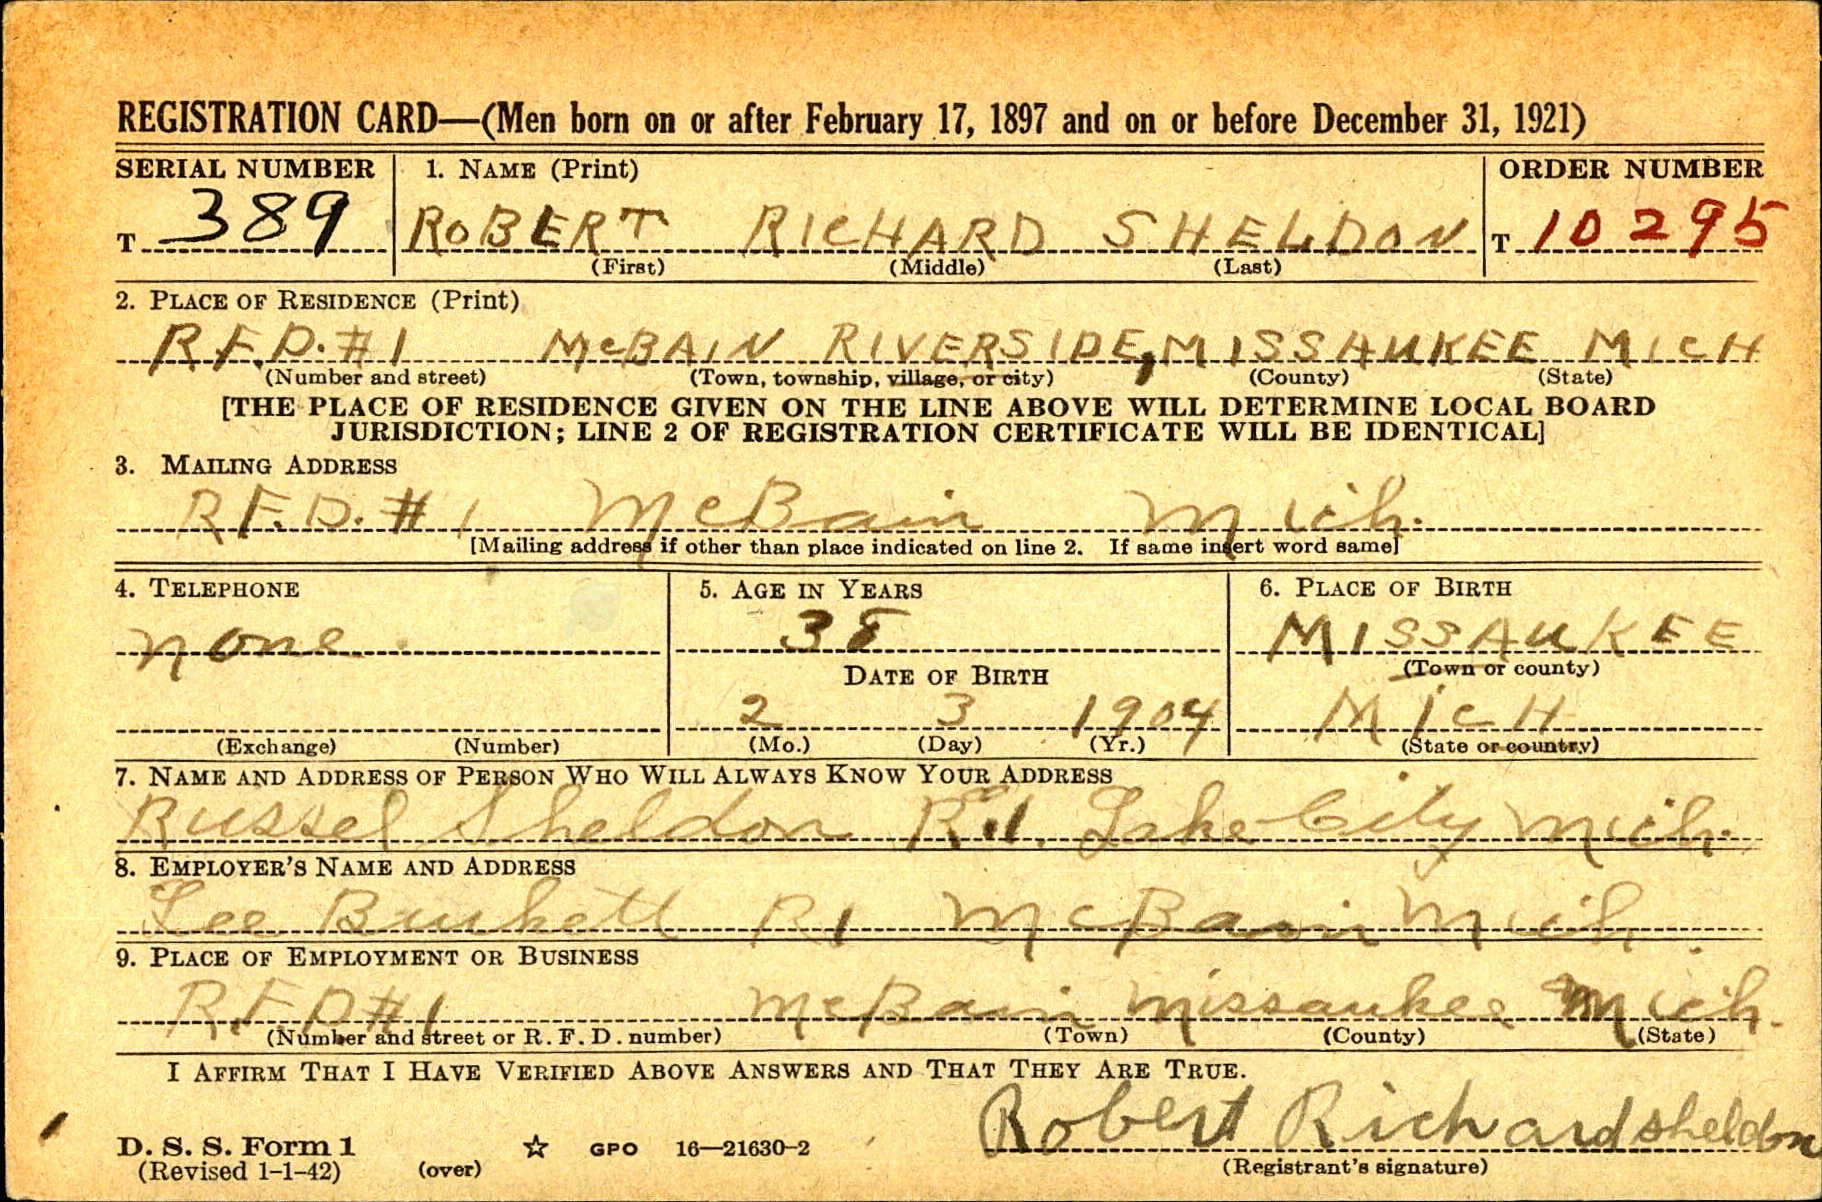 REGISTRATION CARD—(Men born on or after February 17, 1897 and on or before December 31, 1921)
SERIAL NUMBER 1. NAME (Print) ORDER NUMBER
T 389 ROBERT RICHARD SHELDON T 10295
(First) (Middle) (Last)
2. PLACE OF RESIDENCE (Print)
R.F.D. #1 McBAIN RIVERSIDE, MISSAUKEE MICH
(Number and street) (Town, township, village, or city) (County) (State)
[THE PLACE OF RESIDENCE GIVEN ON THE LINE ABOVE WILL DETERMINE LOCAL BOARD
JURISDICTION; LINE 2 OF REGISTRATION CERTIFICATE WILL BE IDENTICAL]
3. MAILING ADDRESS
R.F.D. #1 McBain Mich.
[Mailing address if other than place indicated on line 2. If same insert word same]
4. TELEPHONE 5. AGE IN YEARS 6. PLACE OF BIRTH
none 38 MISSAUKEE
DATE OF BIRTH (Town or county)
2 3 1904 MICH
(Exchange) (Number) (Mo.) (Day) (Yr.) (State or country)
7. NAME AND ADDRESS OF PERSON WHO WILL ALWAYS KNOW YOUR ADDRESS
Russel Sheldon R.1. Lake City Mich.
8. EMPLOYER'S NAME AND ADDRESS
Lee R1 McBain Mich.
9. PLACE OF EMPLOYMENT OR BUSINESS
R.F.D #1 McBain Missaukee Mich.
(Number and street or R. F. D. number) (Town) (County) (State)
I AFFIRM THAT I HAVE VERIFIED ABOVE ANSWERS AND THAT THEY ARE TRUE.
Robert Richard Sheldon
D. S. S. Form 1 GPO 16—21630-2
(Revised 1-1-42) (over) (Registrant's signature)